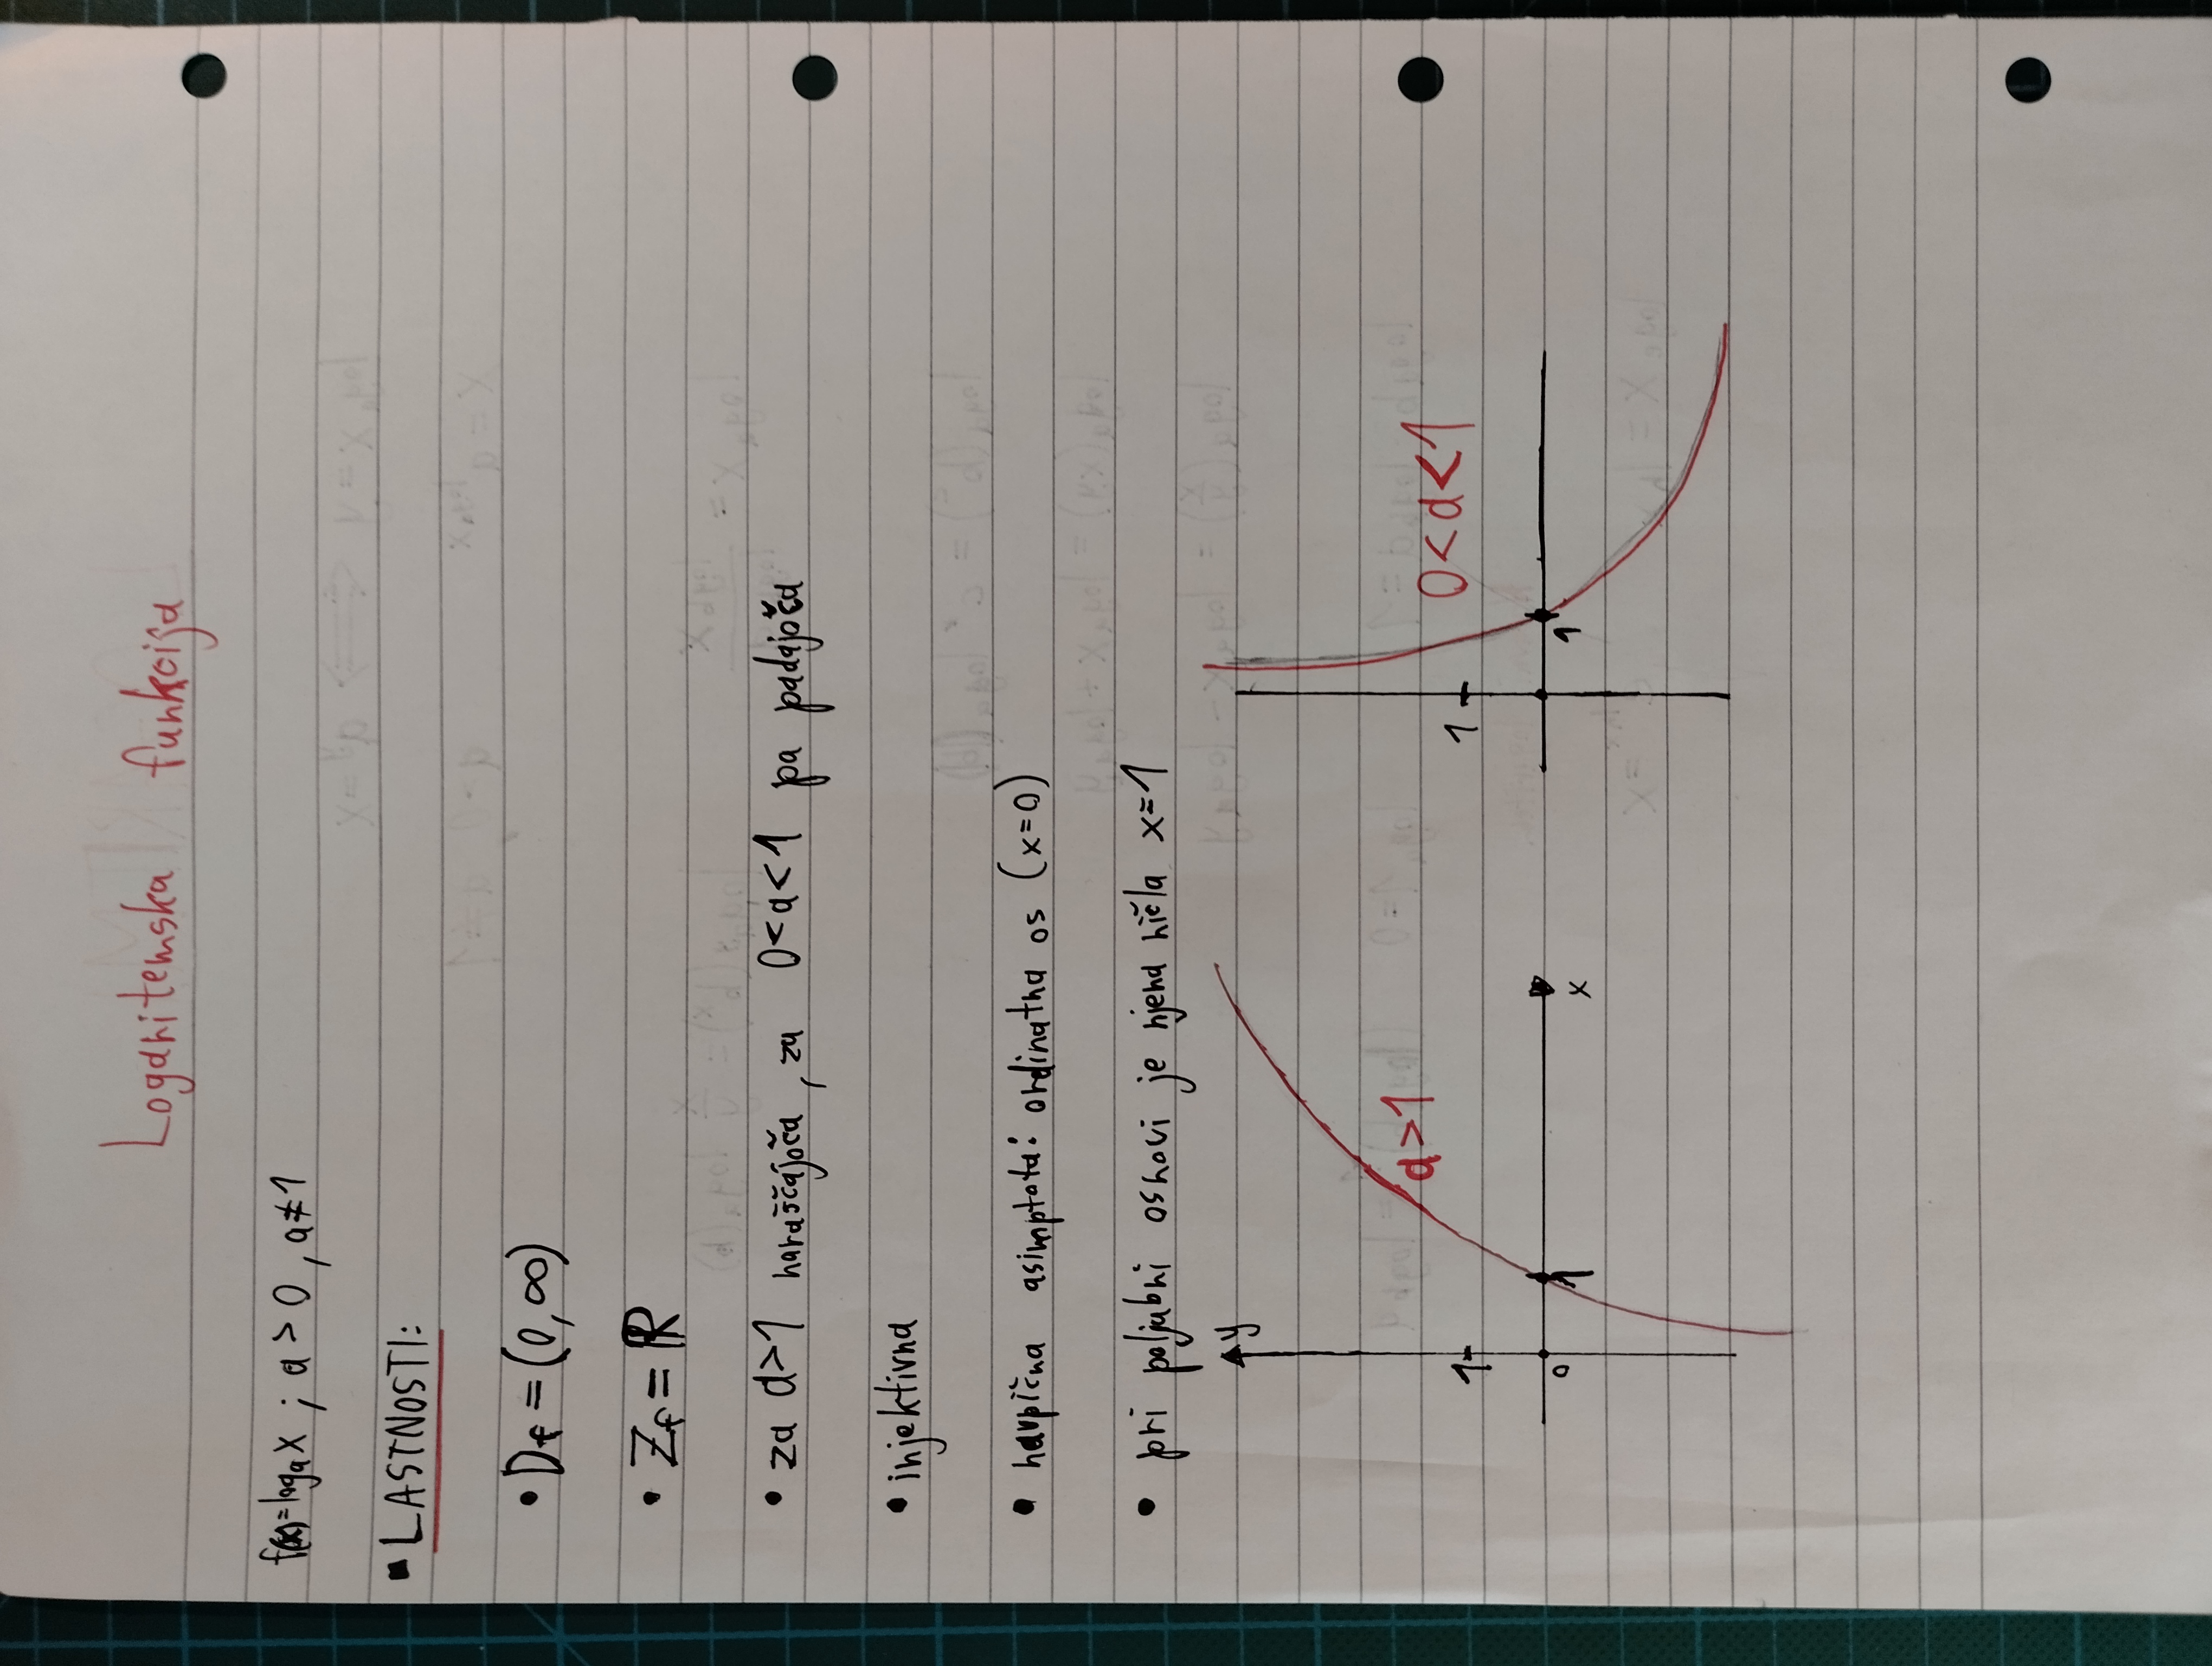 Logaritemska funkcija
f(x)=logₐx ; a > 0 , a≠1
▪ LASTNOSTI:
• D_f = (0,∞)
• Z_f = ℝ
• za a>1 naraščajoča, za 0<a<1 pa padajoča
• injektivna
• navpična asimptota: ordinatna os (x=0)
• pri poljubni osnovi je njena ničla x=1
y
a>1
1
0 1 x
0<a<1
1
1